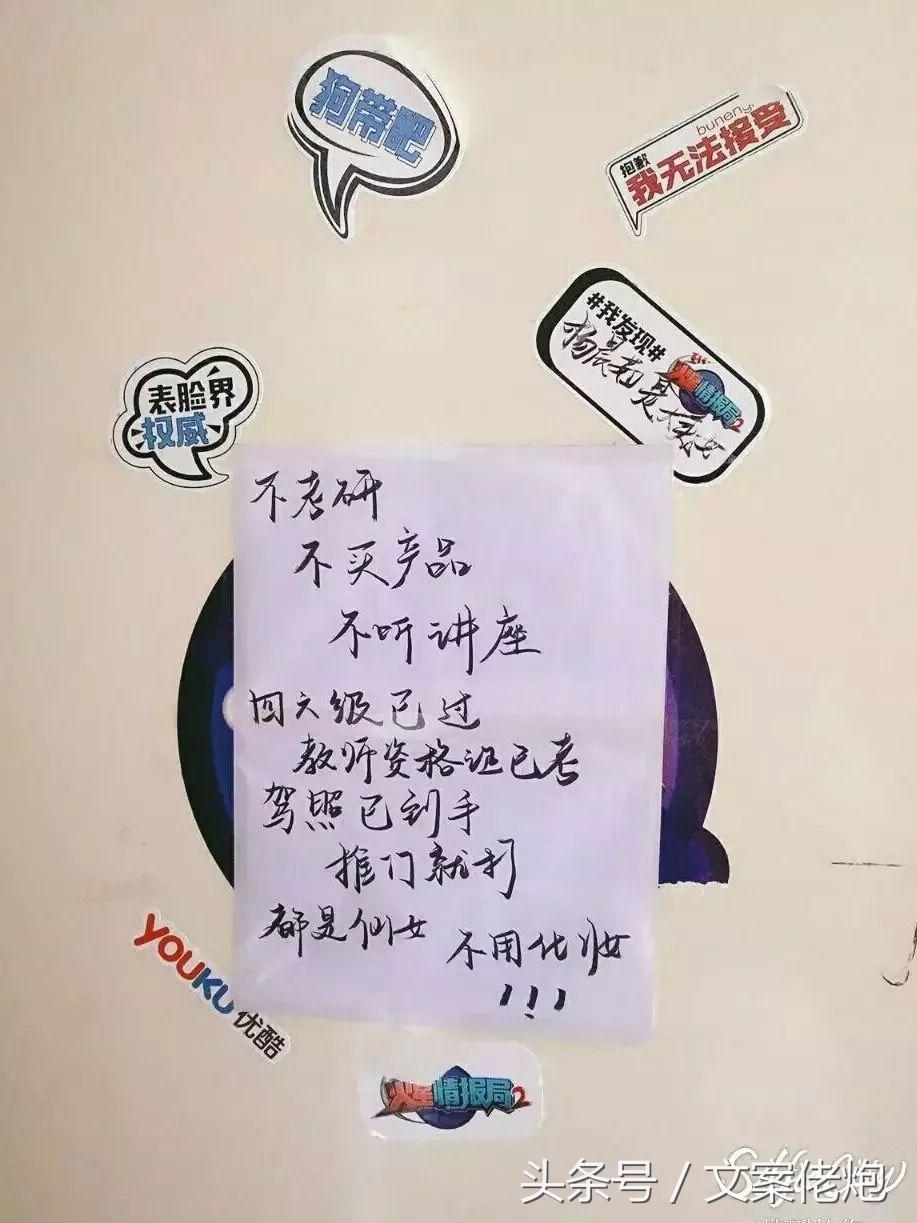 狗带吧
buneng
抱歉
我无法接受
#我发现#
火星情报局2
表脸界
权威
不考研
不买产品
不听讲座
四六级已过
教师资格证已考
驾照已到手
推门就打
都是仙女
不用化妆
!!!
YOUKU
优酷
火星情报局2
头条号 / 文案佬炮